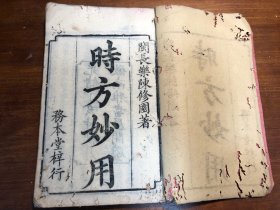 閩長樂陳修園著
時方妙用
務本堂梓行